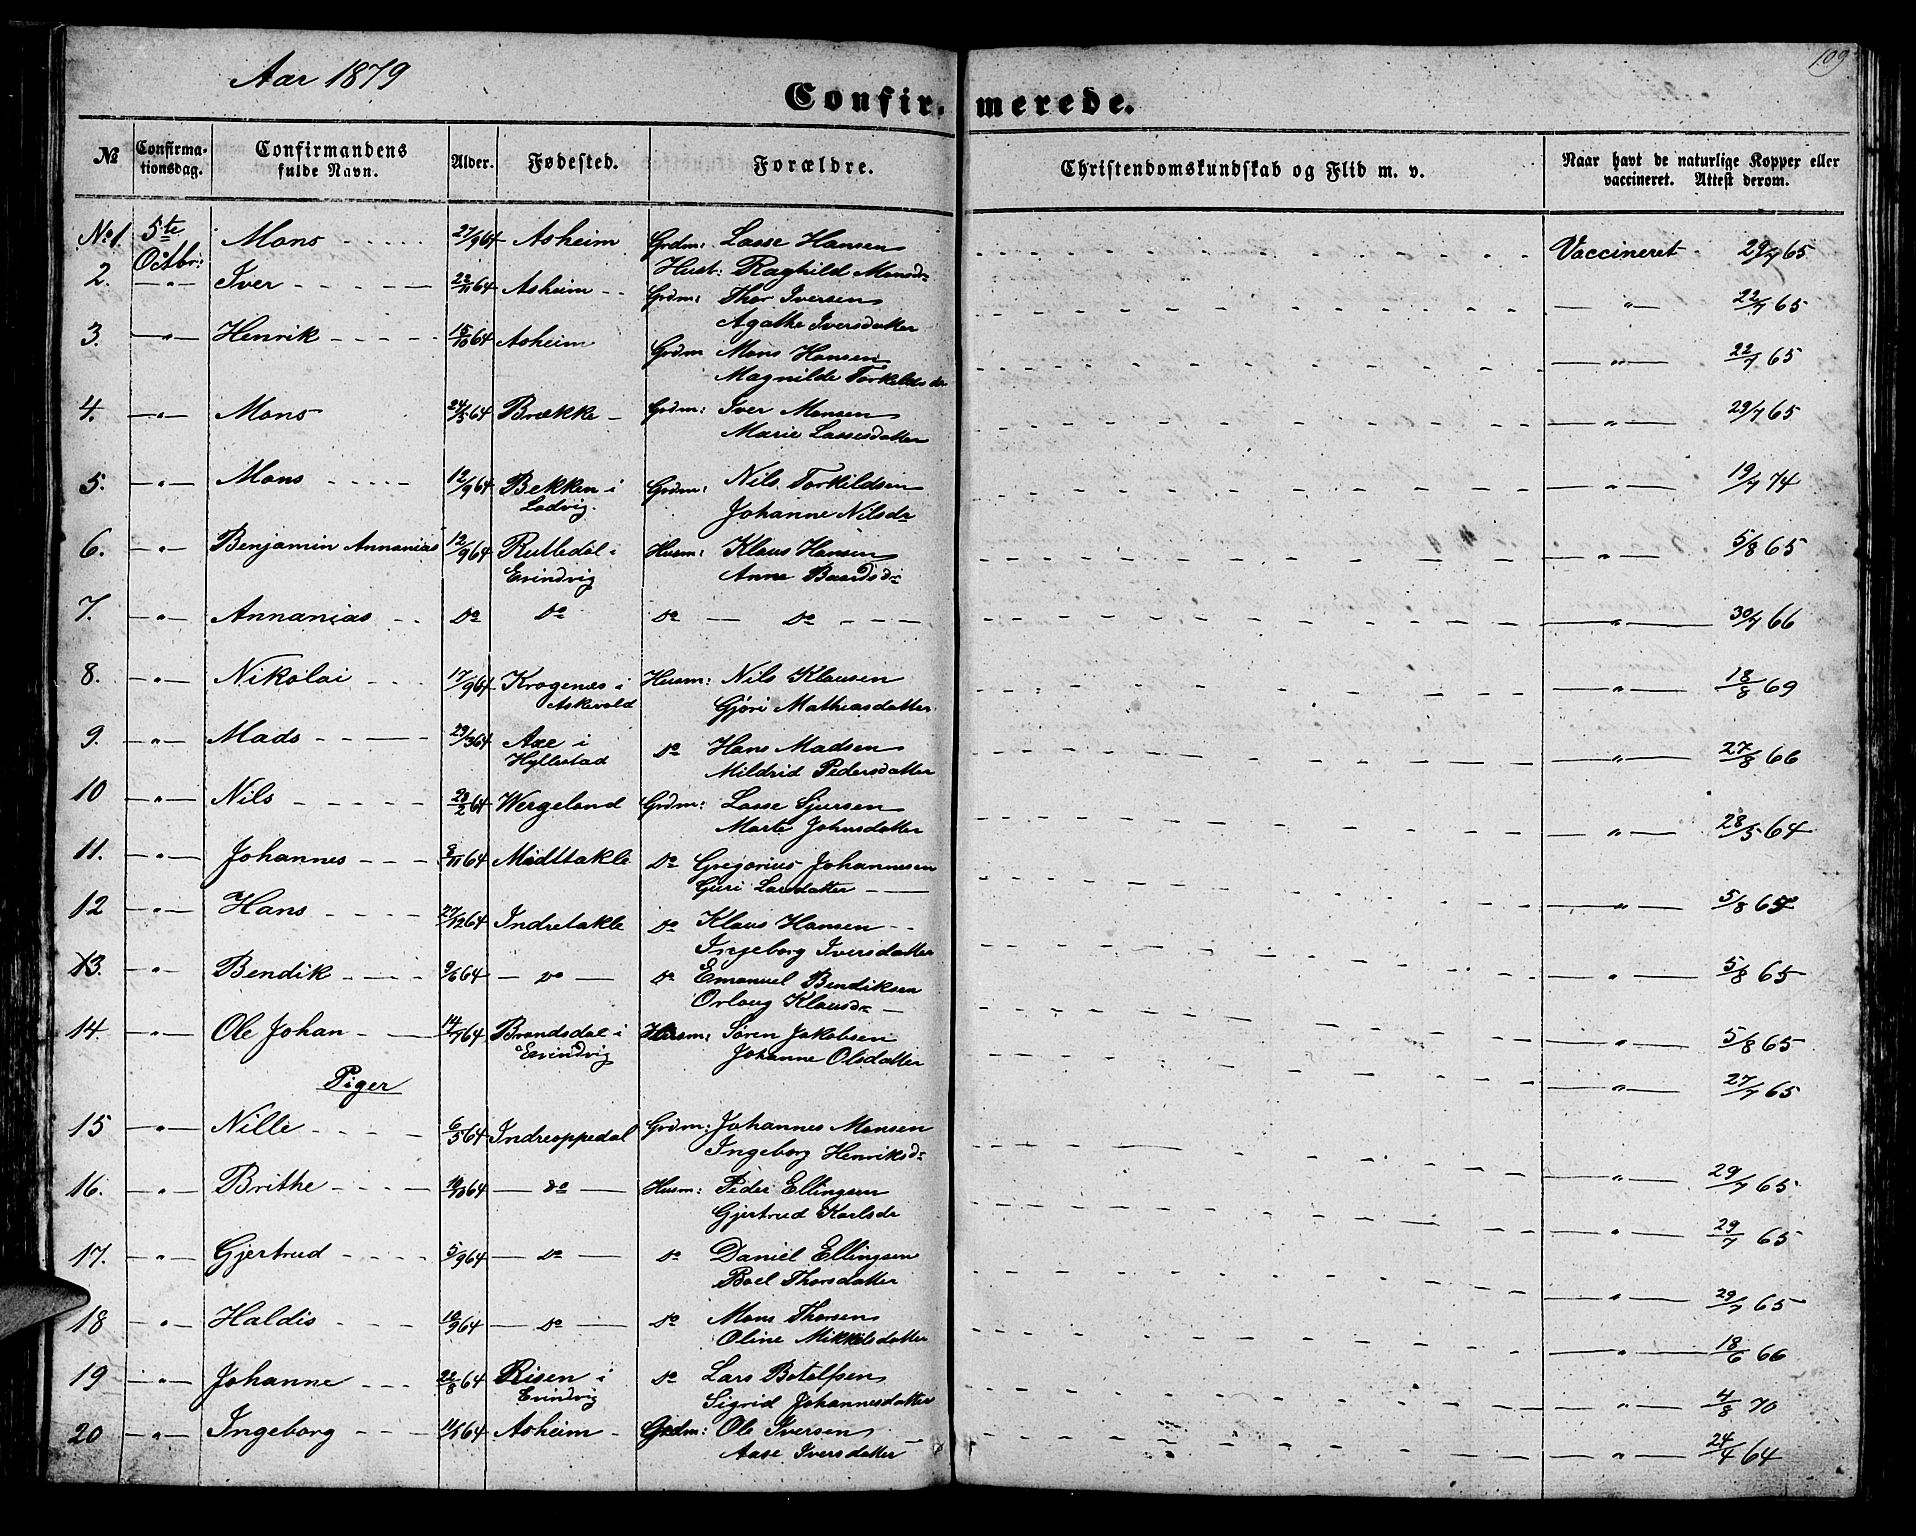 109
Aar 1879
Confirmerede.
№ Confirmationsdag. Confirmandens fulde Navn. Alder. Fødested. Forældre. Christendomskundskab og Flid m. v. Naar havt de naturlige Kopper eller vaccineret. Attest derom.
No 1. 5te Octbr: Mons 27/9 64 Asheim Grdm: Lasse Hansen Vaccineret 29/7 65
Hust: Raghild Monsdr
2. -"- Iver 22/11 64 Asheim Grdm: Thor Iversen -"- 22/7 65
Agathe Iversdatter
3. -"- Henrik 15/10 64 Asheim Grdm Mons Hansen -"- 22/7 65
Magnilde Torkildsdr
4. -"- Mons 24/5 64 Brække Grdm: Iver Monsen -"- 29/7 65
Marie Lassesdatter
5. -"- Mons 12/9 64 Bekken i Grdm: Nils Torkildsen -"- 19/7 74
Ladvig. Johanne Nilsdr
6. -"- Benjamin Annanias 12/9 64 Rutledal i Husm: Klaus Hansen -"- 5/8 65
Evindvig Anne Baardsdr
7. -"- Annanias do do do do -"- 30/7 66
8. -"- Nikolai 17/9 64 Krogenæs i Husm: Nils Klausen -"- 18/8 69
Askevold Gjøri Mathiasdatter
9. -"- Mads 29/3 64 Axe i do Hans Madsen -"- 27/8 66
Hyllestad Mildrid Pedersdatter
10 -"- Nils 28/2 64 Wergeland Grdm: Lasse Sjursen -"- 28/5 64
Marte Johnsdatter
11. -"- Johannes 8/11 64 Midttakle do Gregorius Johannesen
Guri Larsdatter
12 -"- Hans 27/12 64 Indretakle do Klaus Hansen -"- 5/8 65
Ingeborg Iversdatter
13. -"- Bendik 9/6 64 - do - do Emanuel Bendiksen -"- 5/8 65
Orlaug Klausdr
14. -"- Ole Johan 14/7 64 Brandsdal i Husm: Søren Jakobsen -"- 5/8 65
Evindvig Johanne Olsdatter
Piger -"- 27/7 65
15 -"- Nille 6/5 64 Indreoppedal Grdm: Johannes Monsen
Ingeborg Henriksdr
16. -"- Brithe 10/10 64 - do - Husm: Peder Ellingsen -"- 29/7 65
Gjertrud Karlsdr
17. -"- Gjertrud 5/9 64 - do - do Daniel Ellingsen -"- 29/7 65
Boel Thorsdatter
18 -"- Haldis 10/9 64 - do - do Mons Thorsen -"- 29/7 65
Oline Mikkelsdatter -"- 18/6 66
19 -"- Johanne 22/8 64 Risen i do Lars Botolfsen
Evindvig Sigrid Johannesdatter -"- 4/8 70
20 -"- Ingeborg 64 Asheim Grdm: Ole Iversen -"- 24/4 64
Aase Iversdatter